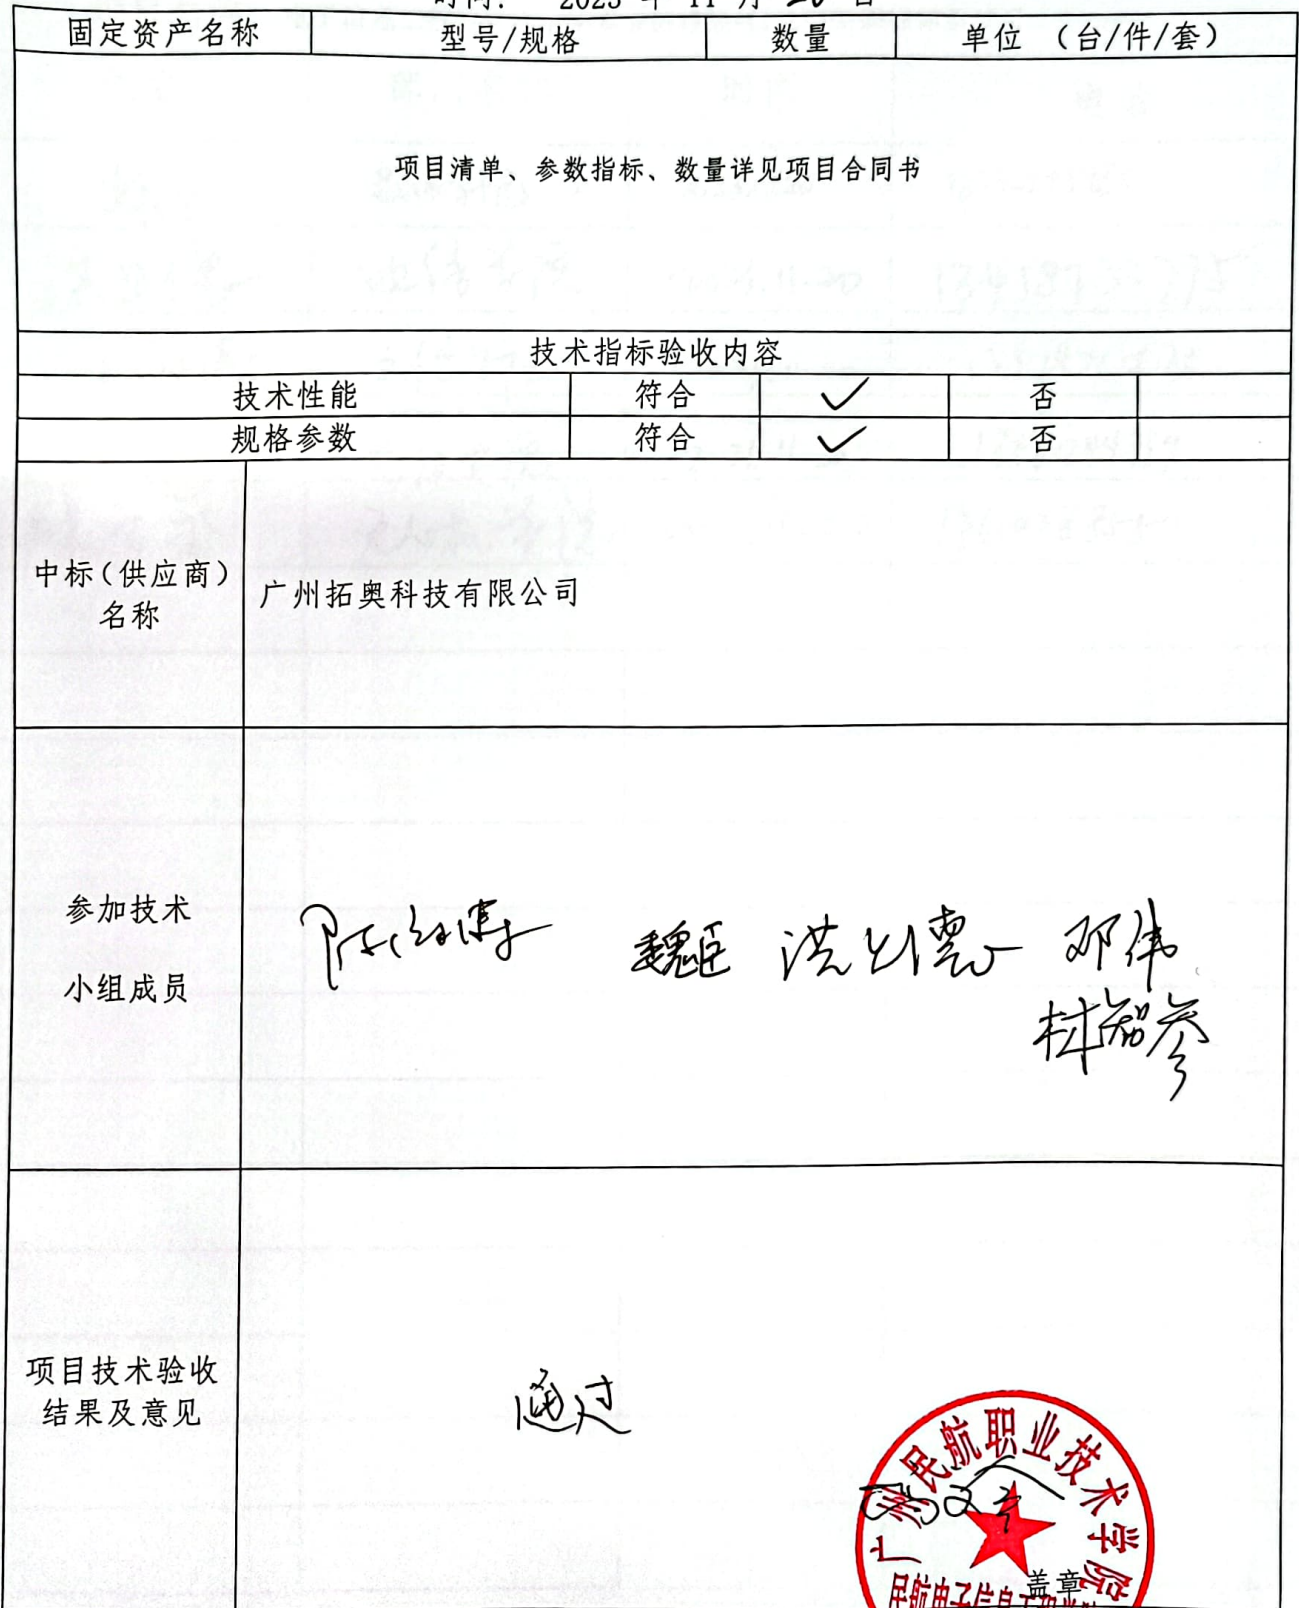 2023 年 11 月 20 日
固定资产名称 型号/规格 数量 单位 (台/件/套)
项目清单、参数指标、数量详见项目合同书
技术指标验收内容
技术性能 符合 ✓ 否
规格参数 符合 ✓ 否
中标(供应商)
名称
广州拓奥科技有限公司
参加技术
小组成员
魏臣 邓伟
林智参
项目技术验收
结果及意见
通过
广州民航职业技术学院
盖章